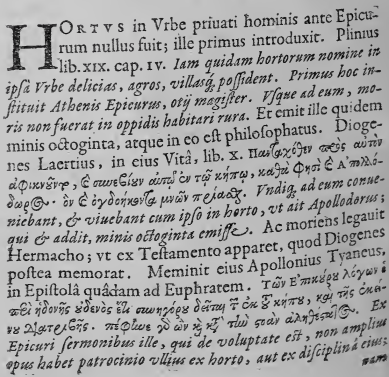 HORTVS in Vrbe priuati hominis ante Epicu-
rum nullus fuit; ille primus introduxit. Plinius
lib. XIX. cap. IV. Iam quidam hortorum nomine in
ipsâ Vrbe delicias, agros, villasq́; possident. Primus hoc in-
stituit Athenis Epicurus, otij magister. Vsque ad eum, mo-
ris non fuerat in oppidis habitari rura. Et emit ille quidem
minis octoginta, atque in eo est philosophatus. Dioge-
nes Laertius, in eius Vitâ, lib. X. Πανταχόθεν πρὸς αὐτὸν
ἀφικνοῦντο, ἐ συνεβίουν αὐτῷ ἐν τῷ κήπῳ, καθά φησι ἐ Ἀπολλό-
δωρος. ὃν ἐ ὀγδοήκοντα μνῶν πρίασθαι. Vndiq́; ad eum conue-
niebant, & viuebant cum ipso in horto, vt ait Apollodorus;
qui & addit, minis octoginta emisse. Ac moriens legauit
Hermacho; vt ex Testamento apparet, quod Diogenes
postea memorat. Meminit eius Apollonius Tyaneus,
in Epistolâ quâdam ad Euphratem. Τῶν Ἐπικούρου λόγων ὁ
περὶ ἡδονῆς οὐδενὸς ἔτι συνηγόρου δεῖται τ͂ ἐκ τ͂ κήπου, καὶ τῆς ἐκεί-
νου διατριβῆς. πέφηνε γὸ ὢν κ̀ κτ̀ τὴν στοὰν ἀληθέστατος. Ex
Epicuri sermonibus ille, qui de voluptate est, non amplius
opus habet patrocinio vllius ex horto, aut ex disciplinâ eius;
nam